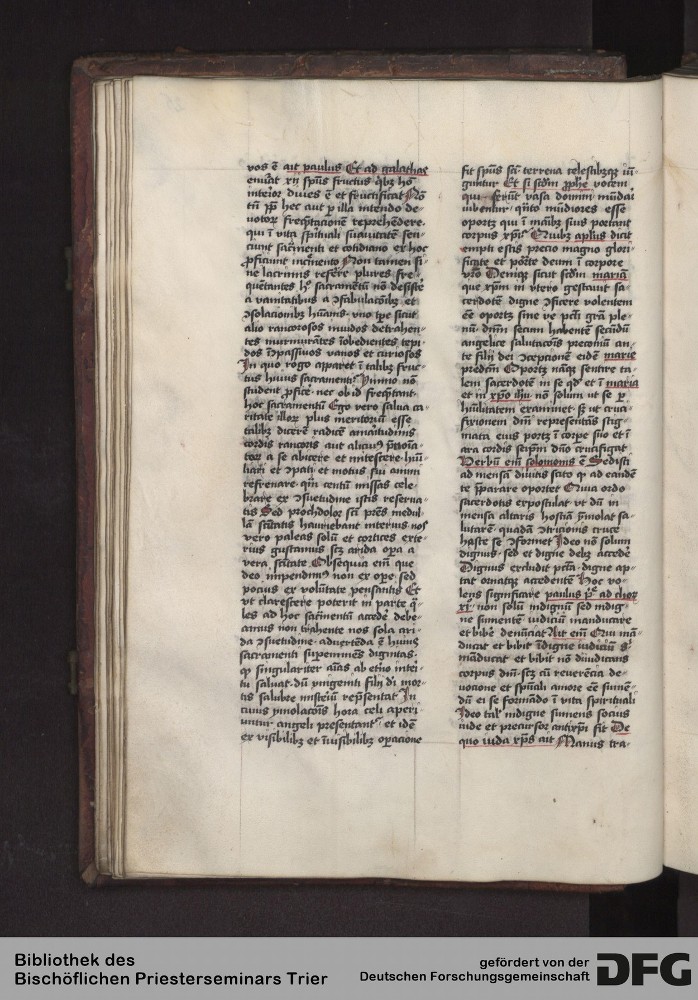 vos ē ait paulus Et ad galathas
enūat xij spūs fructus qbꝫ hō
interior diues ē et fructificat Nō
tn̄ pp̄ hec aut p illa intendo de-
votoꝝ freqn̄tacionē reprehēdere
qui ī vita spūali suauitatē sen-
ciunt sacr̄menti et cotidiano ex hoc
ꝓficiunt incr̄mento Non tamen si-
ne lacrimis refere plures fre-
quētantes hͦ sacramētū nō desiste
a vanitatibus a ɔfabulacōibꝫ et
ɔsolacionibꝫ hūanis vno tpe sicut
alio rancorosos inuidos detrahen-
tes murmurātes īobedientes tepi-
dos īɔpassiuos vanos et curiosos
In quo rogo apparet ī talibꝫ fruc-
tus huius sacramenti Ymmo nō
student ꝓficē nec ob id freqn̄tant
hoc sacramentū Ego vero salua ca-
ritate illoꝝ plus meritoriū esse
talibꝫ dicerē radicē amaritudinis
cordis rancoris aut alicuiꝰ
a se abicere et mitescere
et ɔpati et motus sui animi
refrenare qm̄ centū missas cele-
brare ex ɔsuetudine istis reserua-
tis Sed prochdolor sci pr̄es medul-
lā sc̄itatis hauriebant interius nos
vero paleas solū et cortices exte-
rius gustamus scꝫ arida opa a
vera sc̄itate Obsequia eīm que
deo impendimꝰ non ex ope sed
pocius ex volūtate pensantis Et
vt clarescere poterit in parte q̄-
les ad hoc sacr̄mentū accedē debe-
amus non trahente nos sola ari-
da ɔsuetudine aduertēda ē huiꝰ
sacramenti supeminēs dignitas
qꝫ singulariter aīas ab etͤno interi-
tu saluat dū vnigeniti filij dī mor-
tis salubre misteriū rep̄sentat In
cuius ymolacōis hora celi aperi-
untur angeli presentantͬ et idē
ex visibilibꝫ et īuisibilibꝫ opacione
fit spūs sc̄i terrena celestibꝫqꝫ iū-
guntur Et si scdm̄ ꝓphē vocem
qui ferūt vasa domini mūdari
iubentur qn̄to mūdiores esse
oportꝫ qui ī māibꝫ suis portant
corpus xpī Quibꝫ apl̄us dicit
empti estis precio magno glori-
ficate et portate deum ī corpore
vr̄o Deniqꝫ sicut scdm̄ mariā
que xpm̄ in vtero gestauit sa-
cerdotē digne ɔficere volentem
ēē oportꝫ sine ve pc̄ti grā ple-
nū dnm̄ secum habentē secūdū
angelice salutacōis preconiū an-
te filij dei ɔcepcionē eidē marie
predcm̄ Oportꝫ nāqꝫ sentire ta-
lem sacerdotē in se qd et ī maria
et in xp̄o ihū nō solum vt se p
hūilitatem examinet sꝫ vt cruci-
fixionem dnī representās stig-
mata eius portꝫ ī corpe suo et ī
ara cordis seipm̄ dno crucifigat
Verbū eīm solomonis ē Sedisti
ad mensā diuitis scito qꝫ ad eandē
te p̄parare oportet Quia ordo
sacerdotis expostulat vt dū in
mensa altaris hostiā ymolat sa-
lutarē quadā ɔtricionis cruce
hoste se ɔformet Ideo nō solum
dignus sed et digne debꝫ accedē
Dignus excludit pctā digne ap-
tat ornatqꝫ accedentē Hoc vo-
lens significare paulus p̄ ad chor
xi non solū indignū sed indig-
ne sumente iudiciū manducare
et bibē denūciat Ait eīm Qui mā-
ducat et bibit īdigne iudiciū sͥ
māducat et bibit nō diiudicans
corpus dnī scꝫ cū reuerēcia de-
uocione et spūali amore eē sumē-
dū ei se formādo ī vita spirituali
Ideo talͥ indigne sumens socius
iude et precursor antixpī fit De
quo iuda xp̄s ait Manus tra-
Bibliothek des
Bischöflichen Priesterseminars Trier
gefördert von der
Deutschen Forschungsgemeinschaft
DFG